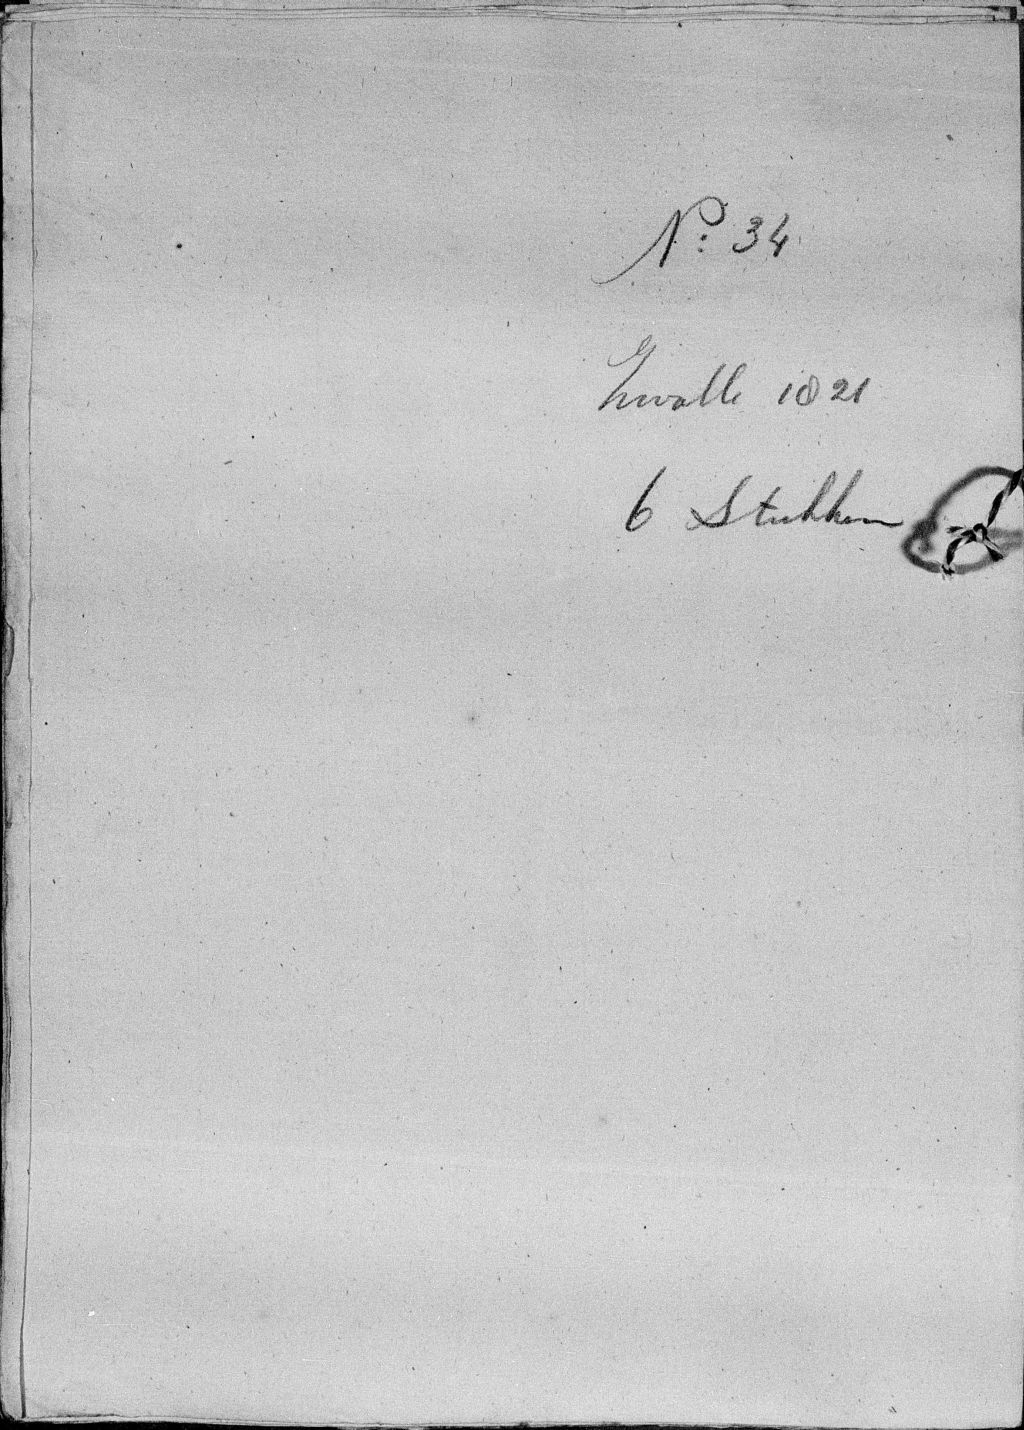 No: 34
Zwolle 1821
6 Stukken